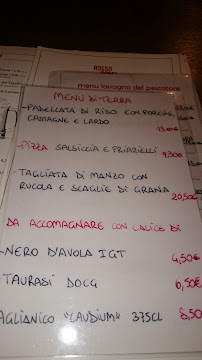 ROSSO
menu lavagna del pescatore
MENU DI TERRA
-PADELLATA DI RISO CON PORCINI,
CASTAGNE E LARDO
13,00€
-PIZZA SALSICCIA E FRIARIELLI
9,00€
-TAGLIATA DI MANZO CON
RUCOLA E SCAGLIE DI GRANA
20,50€
DA ACCOMAGNARE CON CALICE DI
-NERO D'AVOLA IGT 4,50€
TAURASI DOCG 6,50€
AGLIANICO "CAUDIUM" 375CL 8,50